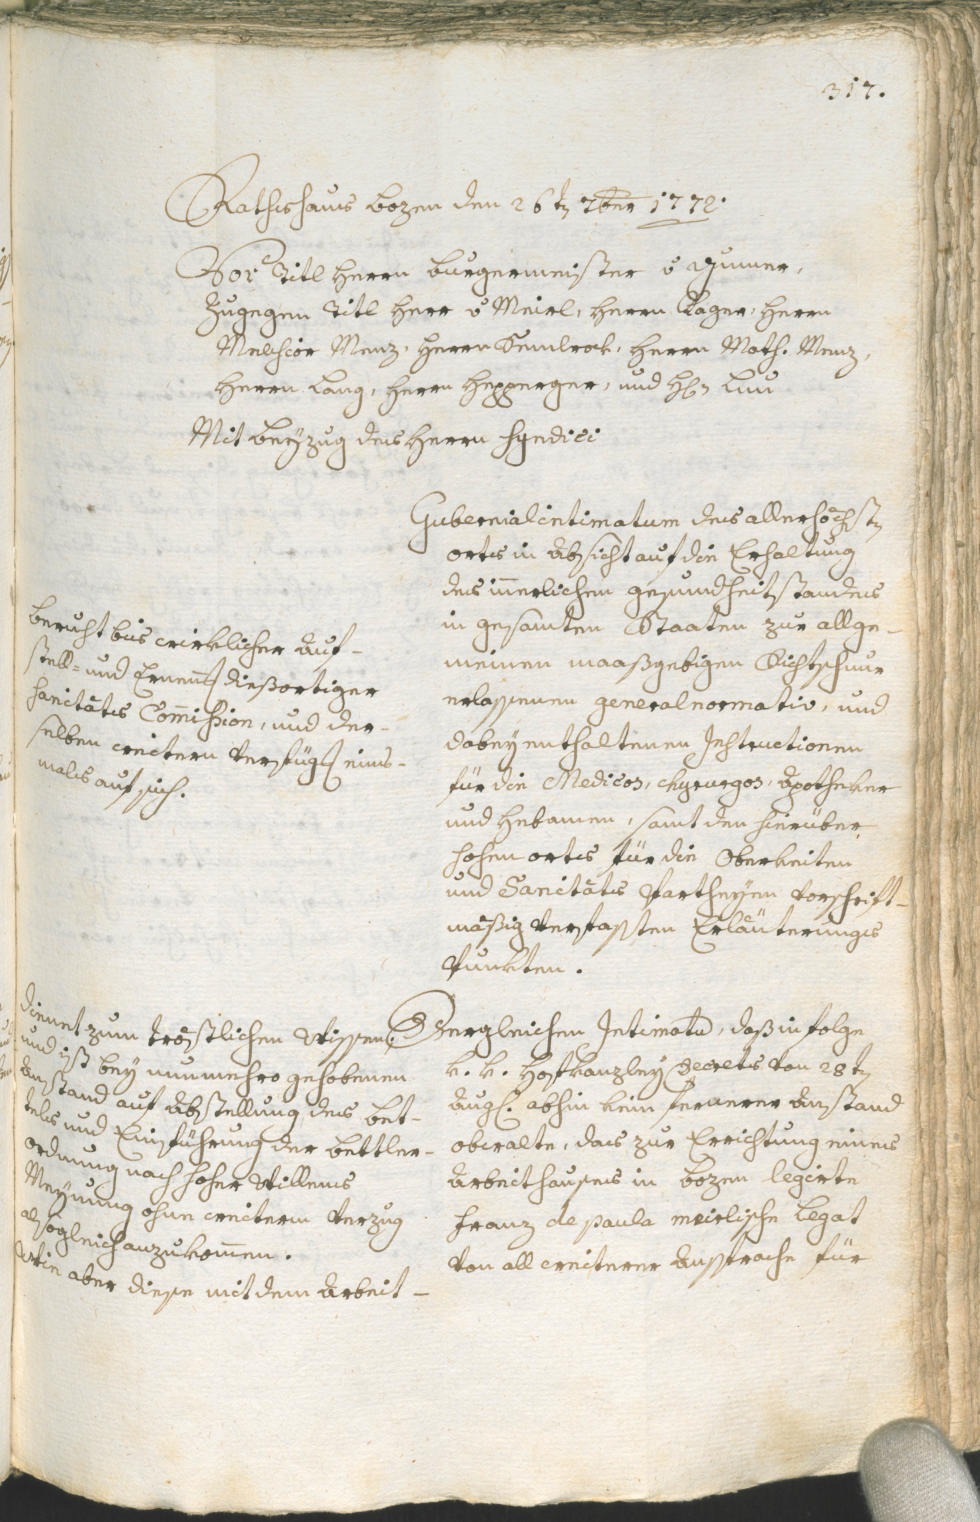 317.
Rathshaus Bozen den 26t 7ber 1772.
Vor Titl Herrn Burgermeister v Gumer,
Zugegen Titl Herr v Meirl, Herrn Wager, Herrn
Melchior Menz, Herrn Semlrock, Herrn Math. Menz,
Herrn Lang, Herrn Hepperger, und H
Mit Beyzug des Herrn Syndici
Gubernial intimatum des allerhöchst
orts in Absicht auf die Erhaltung
des innerlichen gesundheitsstandes
in gesamten Staaten zur allge-
meinen maaßgebigen Richtschnur
erlassenen general normativ, und
dabey enthaltenen Instructionen
für die Medicos, Chyrurgos, Apotheker
und Hebamen, samt den hierüber
hohen orts für die Oberkeiten
und Sanitäts Partheyen vorschrift-
mäßig verfassten Erläuterungs
Punkten.
beruht bis wirklicher Auf-
stell- und Ernennung dießortiger
Sanitäts Commission, und der-
selben weitern Verfügung eins-
mals auf sich.
Dergleichen Intimatum, daß in folge
k. k. Hofkanzley Decrets von 28t
Augs. abhin kein fernerer Anstand
obwalte, das zur Errichtung eines
Arbeitshauses in Bozen legirte
Franz de paula meirlische Legat
von all weiterer Ansprache für
dienet zum tröstlichen Wissen,
und ist bey nunmehro gehobenen
Anstand auf Abstellung des Bet-
tels und Einführung der Bettler-
ordnung nach hoher Willens
Meynung ohne weitern Verzug
alsogleich anzukommen.
Wie aber diese mit dem Arbeit-